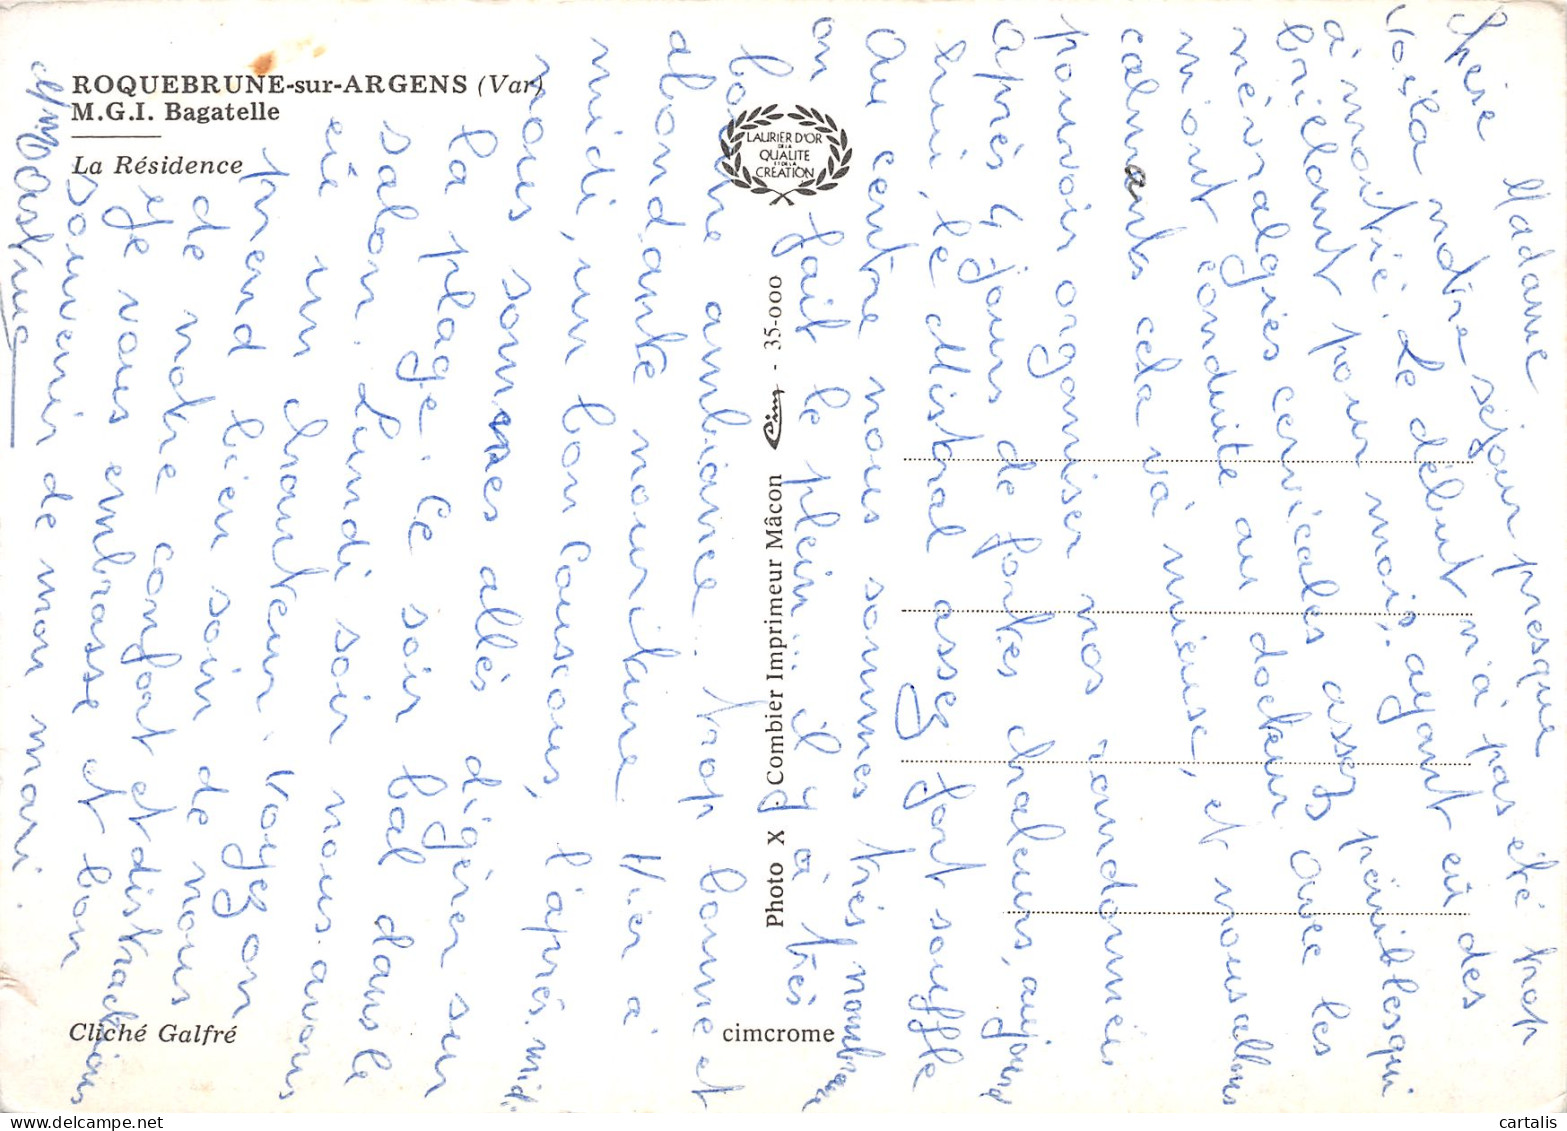 ROQUEBRUNE-sur-ARGENS (Var)
M.G.I. Bagatelle
La Résidence
Cliché Galfré
LAURIER D'OR
DE LA
QUALITE
ET DE LA
CREATION
Photo X . Combier Imprimeur Mâcon Cim - 35-000
cimcrome
Chère Madame
Voilà notre séjour presque
à moitié. Le début n'à pas été trop
brillant pour moi, ayant eu des
névralgies cervicales assez pénibles qui
m'ont conduite au docteur avec les
calmants cela và mieux, et nous allons
pouvoir organiser nos randonnées
Après 4 jours de fortes chaleurs, aujourd
hui, le Mistral assez fort souffle
Au centre nous sommes très nombreux
on fait le plein... il y à très
bonne ambiance. trop bonne et
abondante nouriture. Hier à
midi, un bon Couscous, l'après. midi
nous sommes allés digérer sur
la plage. Ce soir bal dans le
salon. Lundi soir nous. avons
eû un chanteur. Voyez on
prend bien soin de nous
de notre confort et distractions
Je vous embrasse et bon
souvenir de mon mari.